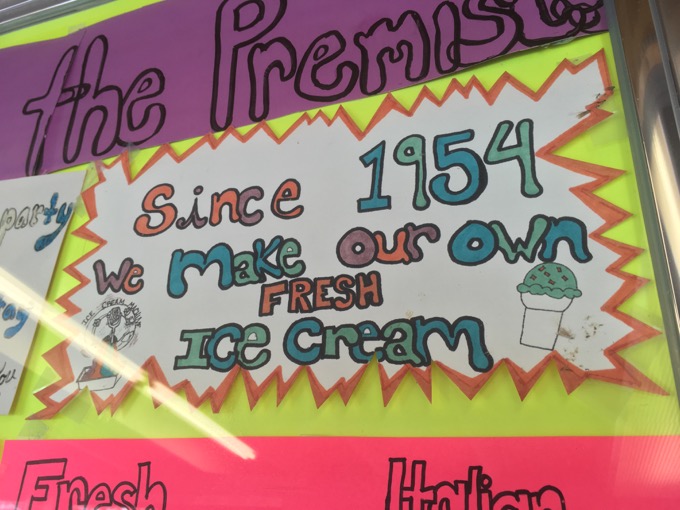 the Premises
party
Since 1954
We make our own
FRESH
Ice Cream
ICE CREAM
you
Fresh
Italian